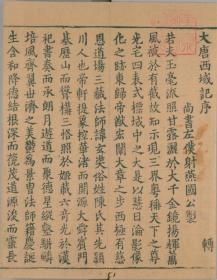 大唐西域記序
尚書左僕射燕國公製
若夫玉毫流照甘露灑於大千金鏡揚輝薰
風被於有截故知示現三界粵稱天下之尊
光宅四表式標域中之大是以慧日淪影像
化之跡東歸帝猷宏闡大章之步西極有慈
恩道場三藏法師諱玄奘俗姓陳氏其先潁
川人也帝軒提象控華渚而開源大舜賓門
基歷山而聳構三恪照於姬載六奇光於漢
祀書奏而承朗月遊道而聚德星縱壑駢鱗
培風齊翼世濟之美鬱為景胄法師籍慶誕
生含和降德結根深而蓊茂道源浚而靈長